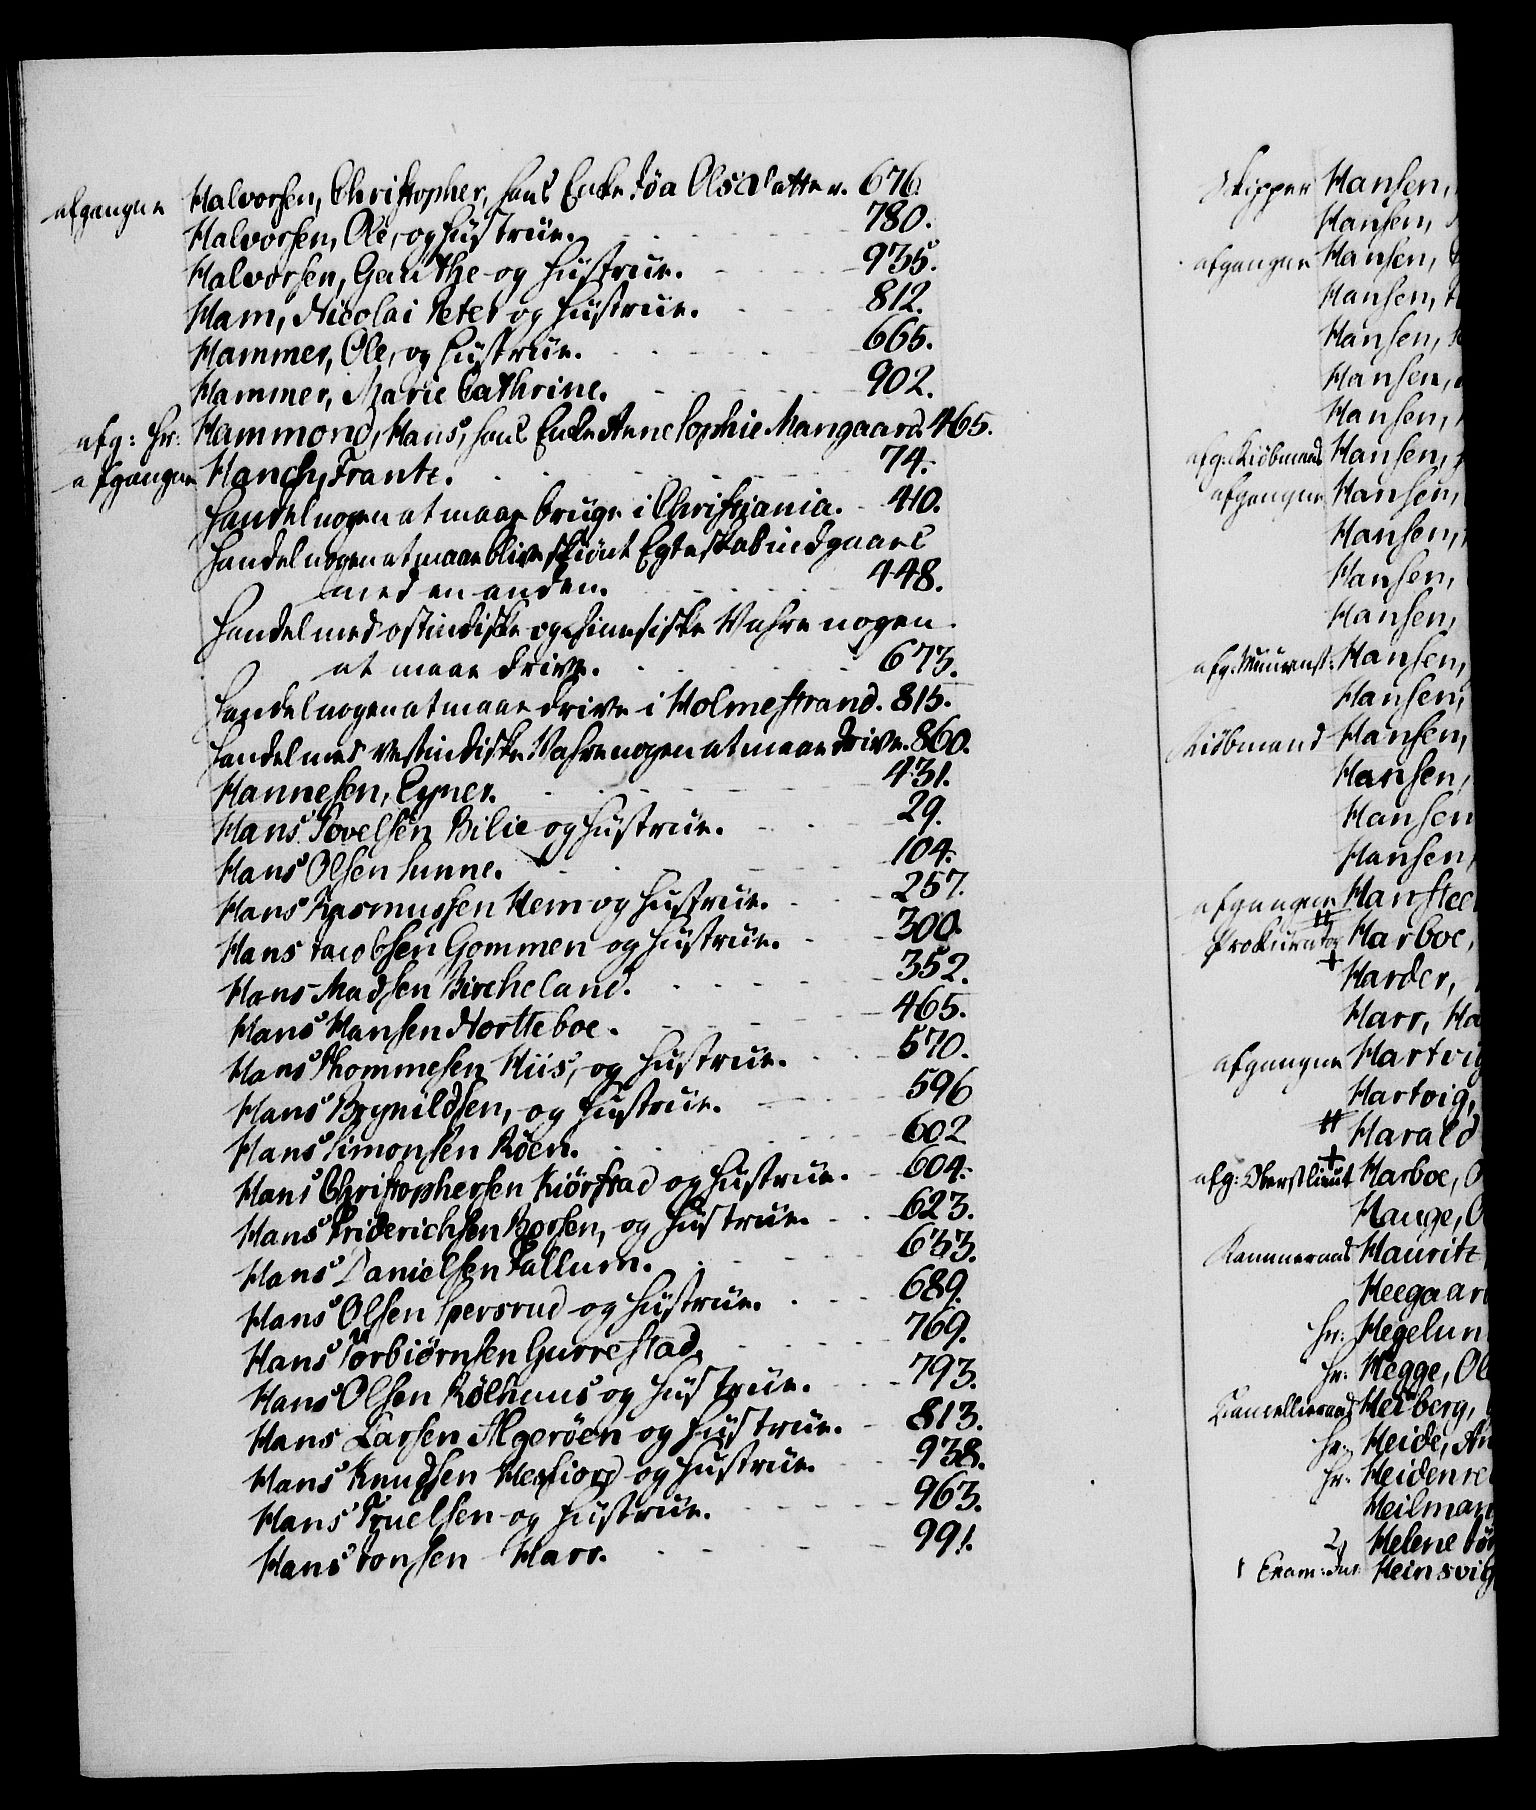 afgangne Halvorsen, Christopher, hans Enke Töa Olsdatter. 676.
Halvorsen, Ole, og Hüstrüe. 780.
Halvorsen, Gauthe og Hüstrüe. 935.
Ham, Nicolai Peter og Hüstrüe. 812.
Hammer, Ole, og Hüstrüe. 665.
Hammer, Marie Cathrine. 902.
afg: Hr: Hammond, Hans, hans Enke Anne Sophie Mangaard. 465.
afgangne Hanch, Frantz. 74.
Handel nogen at maae bruge i Christiania. 410.
Handel nogen at maae blive skiönt Egteskab indgaaes
med en anden. 448.
Handel med ostindiske og chinesiske Vahre nogen
at maae drive. 673.
Handel nogen at maae drive i Holmestrand. 815.
Handel med vestindiske Vahre nogen at maae drive. 860.
Hannesen, Eyner. 431.
Hans Povelsen Bilie og Hüstrüe. 29.
Hans Olsen Sunne. 104.
Hans Rasmussen Hem og Hüstrüe. 257.
Hans Jacobsen Gommen og Hüstrüe. 300.
Hans Madsen Bircheland. 352.
Hans Hansen Nortteboe. 465.
Hans Thommesen Hiis, og Hüstrüe. 570.
Hans Brynildsen, og Hüstrüe. 596
Hans Simonsen Röen. 602
Hans Christophersen Kiörstad og Hüstrüe. 604.
Hans Friderichsen Borsen, og Hüstrüe. 623.
Hans Danielsen Fallum. 633.
Hans Olsen Spersrud og Hüstrüe. 689.
Hans Torbiörnsen Gurrestad. 769.
Hans Olsen Kölhuus og Hüstrüe. 793.
Hans Larsen Algeröen og Hüstrüe. 813.
Hans Knudsen Hesfiord og Hüstrüe. 938.
Hans Truelsen og Hüstrüe. 963.
Hans Jonsen Harr. 991.
Skipper Hansen,
Hansen,
afgangne Hansen,
Hansen,
Hansen,
Hansen,
Hansen,
afg: Kiöbmand Hansen,
afgangne Hansen,
Hansen,
Hansen,
Hansen,
afg: Muurmst: Hansen,
Hansen,
Kiöbmand Hansen,
Hansen,
Hansen
Hansen,
afgangne Hanstee
Prokurator Harboe,
Harder,
Harr, Ha
afgangne Hartvig
Hartvig,
Harald
afg: Oberstlieut Harboe, O
Hauge, O
Kammerraad Hauritz
Heegaar
Hr: Hegelun
Hr: Hegge, Ol
Kancellieraad Heiberg,
Hr: Heide, An
Hr: Heidenre
Heilman
Helene Jör
Exam: Jur: Heinsvig